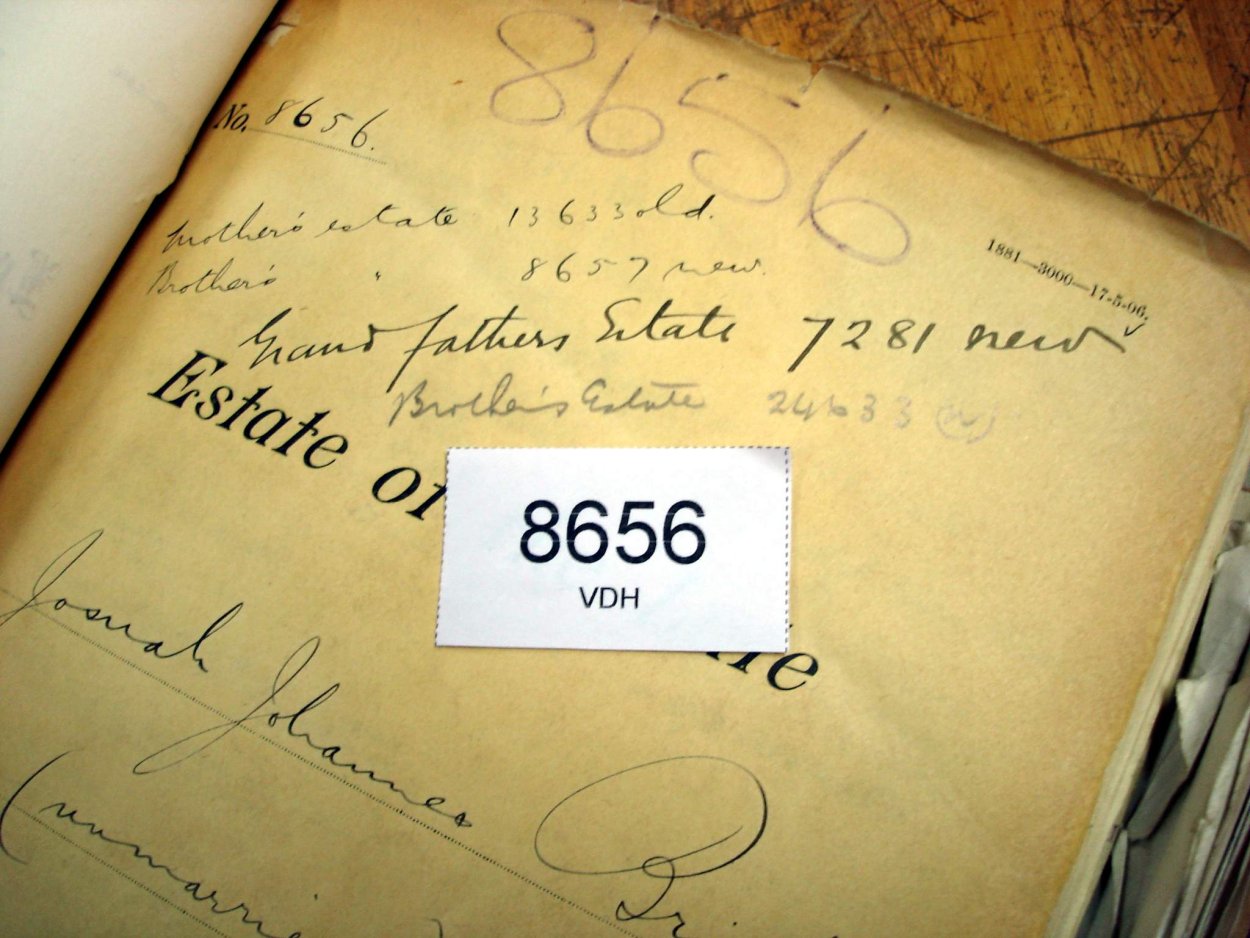 8656
No. 8656.
Mother's estate 13633 old.
Brother's " 8657 new.
1881—3000—17-5-06.
Grand fathers Estate 7281 new
Brother's Estate 24633
Estate of
8656
VDH
Josuah Johannes
(unmarrie